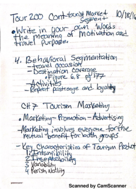 Tour 200 Continental Market 10/10
Segment
• Write in your own words
the meaning of Motivation and
travel Purpose.
4. Behavioral Segmentation
- travel occasion
- Destination coverage
- Figure 6.8 P 177
- Activities
- Expert patronage and loyalty
CH7 Tourism Marketing
- Marketing - Promotion - Advertising
- Marketing involves exchange for the
mutual benefit for both groups
- Key Characteristics of Tourism Product
1. Intangibility
2. Inseparability
3. Variability
4. Perishability
Scanned by CamScanner